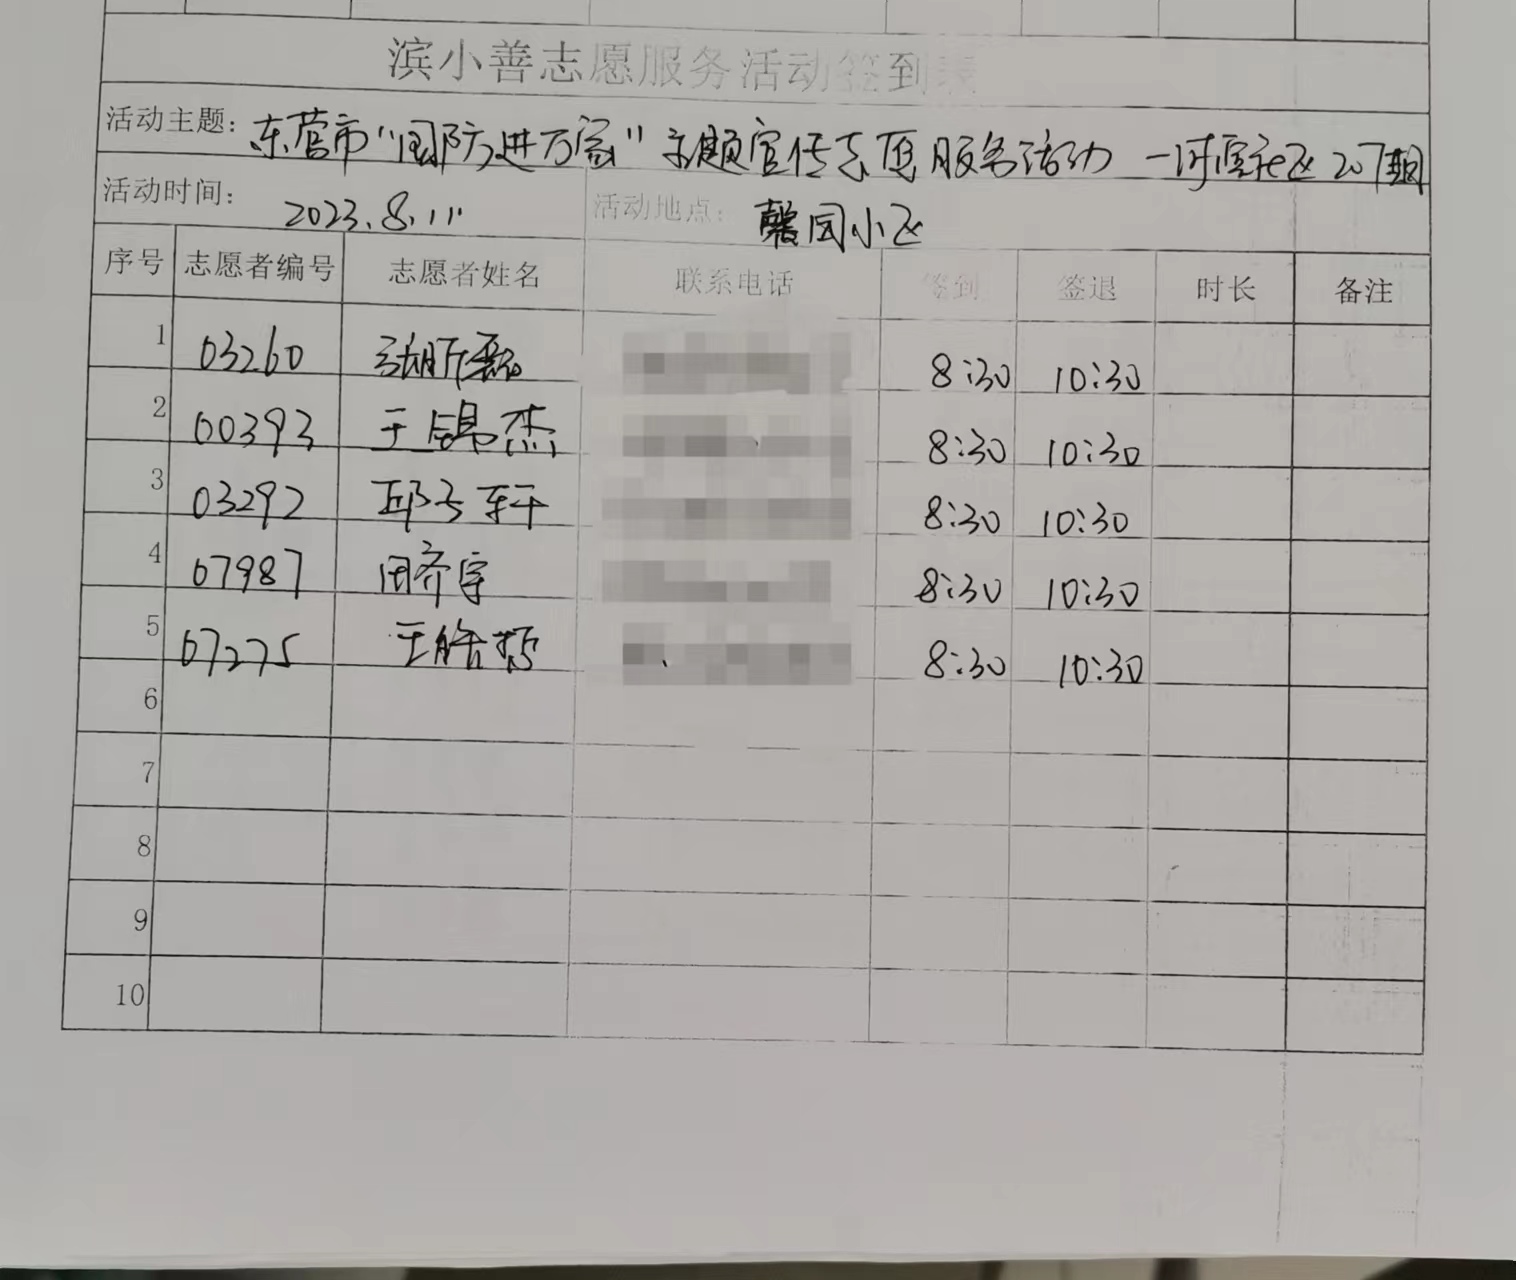 滨小善志愿服务活动签到表
活动主题：东营市"国防进万家"主题宣传志愿服务活动 一 社区207期
活动时间： 2023.8.11 活动地点： 馨园小区
序号 志愿者编号 志愿者姓名 联系电话 签到 签退 时长 备注
1 03260 8:30 10:30
2 00393 王锦杰 8:30 10:30
3 03292 邱子轩 8:30 10:30
4 07987 田齐宇 8:30 10:30
5 07275 王皓哲 8:30 10:30
6
7
8
9
10